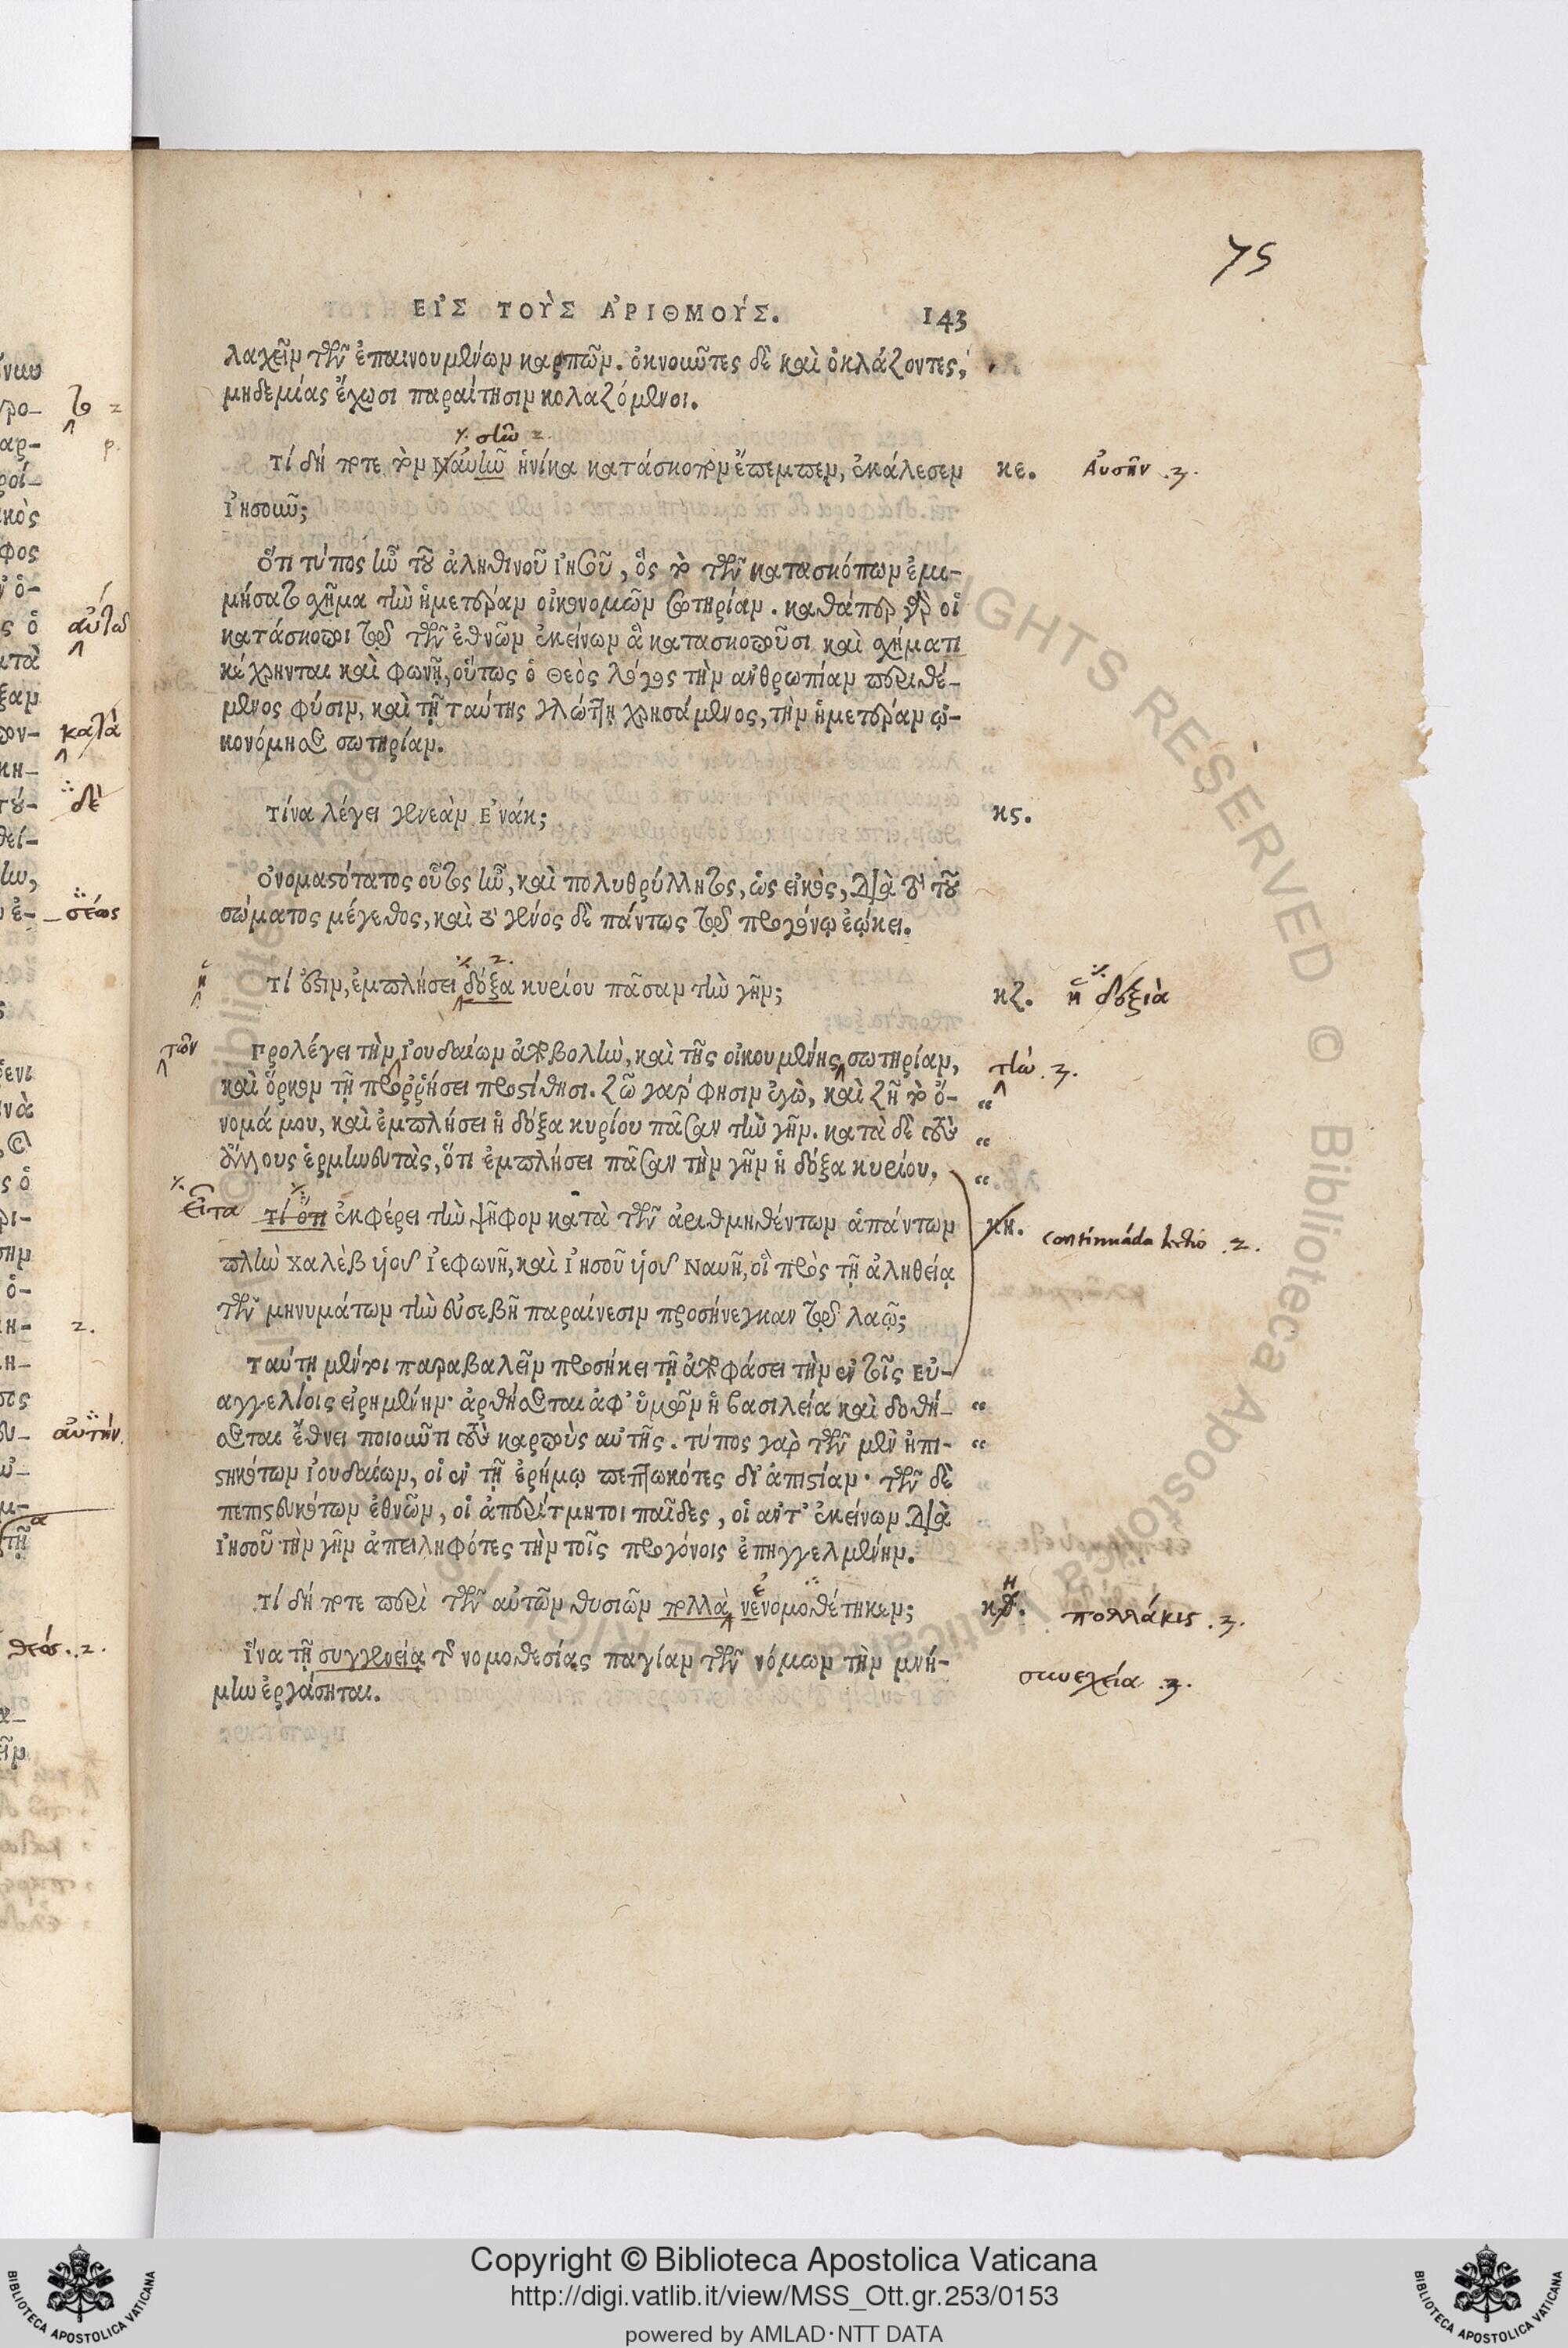 75
ΕΙ᾿Σ ΤΟΥ῀Σ Α᾿ΡΙΘΜΟΥ΄Σ. 143
λαχεῖν τῶν ἐπαινουμένων καρπῶν. ὀκνοῦντες δὲ καὶ ὀκλάζοντες,
μηδεμίας ἔχωσι παραίτησιν κολαζόμενοι.
Τί δή ποτε τὸν Ναυῆν ἡνίκα κατάσκοπον ἔπεμπεν, ἐκάλεσεν κε. Αὐσῆν .3.
Ἰησοῦν;
Ὅτι τύπος ἦν τοῦ ἀληθινοῦ Ἰησοῦ, ὃς τὸ τῶν κατασκόπων ἐμι-
μήσατο σχῆμα τὴν ἡμετέραν οἰκονομῶν σωτηρίαν. καθάπερ γὰρ οἱ
κατάσκοποι τῷ τῶν ἐθνῶν ἐκείνων ἃ κατασκοποῦσι καὶ σχήματι
κέχρηνται καὶ φωνῇ, οὕτως ὁ Θεὸς λόγος τὴν ἀνθρωπίαν περιθέ-
μενος φύσιν, καὶ τῇ ταύτης γλώττῃ χρησάμενος, τὴν ἡμετέραν ᾠ-
κονόμησε σωτηρίαν.
Τίνα λέγει γενεὰν Ἐνάκ; κϛ.
Ὀνομαστότατος οὗτος ἦν, καὶ πολυθρύλλητος, ὡς εἰκὸς, διὰ τὸ τοῦ
σώματος μέγεθος, καὶ τὸ γένος δὲ πάντως τῷ προγόνῳ ἐῴκει.
ἡ Τί ἐστιν, ἐμπλήσει δόξα κυρίου πᾶσαν τὴν γῆν; κζ. ἡ δόξα
τῶν Προλέγει τὴν Ἰουδαίων ἀποβολὴν, καὶ τῆς οἰκουμένης σωτηρίαν, τὴν .3.
καὶ ὅρκον τῇ προρρήσει προστίθησι. Ζῶ γάρ φησιν ἐγὼ, καὶ ζῇ τὸ ὄ- “
νομά μου, καὶ ἐμπλήσει ἡ δόξα κυρίου πᾶσαν τὴν γῆν. κατὰ δὲ τοὺς “
ἄλλους ἑρμηνευτὰς, ὅτι ἐμπλήσει πᾶσαν τὴν γῆν ἡ δόξα κυρίου. “
εἶτα Τί ὅτι ἐκφέρει τὴν ψῆφον κατὰ τῶν ἀριθμηθέντων ἁπάντων κη. continuáda lectio .2.
πλὴν Χαλὲβ υἱοῦ Ἰεφωνῆ, καὶ Ἰησοῦ υἱοῦ Ναυῆ, οἳ πρὸς τῇ ἀληθείᾳ
τῶν μηνυμάτων τὴν εὐσεβῆ παραίνεσιν προσήνεγκαν τῷ λαῷ;
Ταύτῃ μέντοι παραβαλεῖν προσήκει τῇ ἀποφάσει τὴν ἐν τοῖς Εὐ-
αγγελίοις εἰρημένην· ἀρθήσεται ἀφ᾿ ὑμῶν ἡ βασιλεία καὶ δοθή- “
σεται ἔθνει ποιοῦντι τοὺς καρποὺς αὐτῆς. τύπος γὰρ τῶν μὲν ἠπι- “
στηκότων Ἰουδαίων, οἱ ἐν τῇ ἐρήμῳ πεπτωκότες δι᾿ ἀπιστίαν· τῶν δὲ
πεπιστευκότων ἐθνῶν, οἱ ἀπερίτμητοι παῖδες, οἱ ἀντ᾿ ἐκείνων διὰ
Ἰησοῦ τὴν γῆν ἀπειληφότες τὴν τοῖς προγόνοις ἐπηγγελμένην.
Τί δή ποτε περὶ τῶν αὐτῶν θυσιῶν πολλὰ νενομοθέτηκεν; κθ. η πολλάκις .3.
Ἵνα τῇ συγγενείᾳ τῆς νομοθεσίας παγίαν τῶν νόμων τὴν μνή-
μην ἐργάσηται. συνεχεία .3.
αὐτῶ
κατὰ
δὲ
σέως
αὐτήν.
θεός. .2.
Copyright © Biblioteca Apostolica Vaticana
http://digi.vatlib.it/view/MSS_Ott.gr.253/0153
powered by AMLAD·NTT DATA
BIBLIOTECA APOSTOLICA VATICANA
BIBLIOTECA APOSTOLICA VATICANA